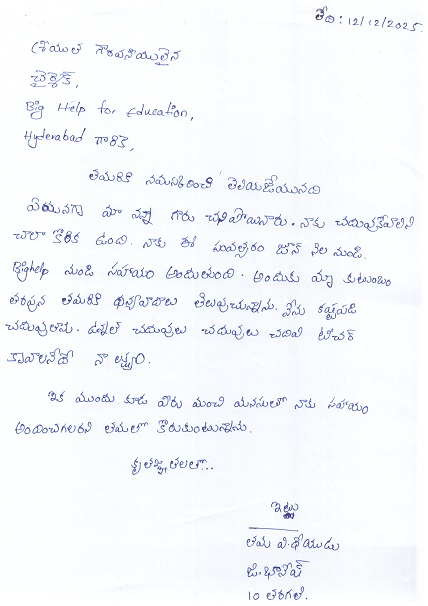 తేది : 12/12/2025.
శ్రీయుత గౌరవనీయులైన
చైర్మన్,
Big Help for Education,
Hyderabad గారికి,
తమరికి నమస్కరించి తెలియజేయునది
ఏమనగా మా నాన్న గారు చనిపోయినారు. నాకు చదువుకోవాలని
చాలా కోరిక ఉంది. నాకు ఈ సంవత్సరం జూన్ నెల నుండి
Bighelp నుండి సహాయం అందుతుంది. అందుకు మా కుటుంబం
తరపున తమరికి ధన్యవాదాలు తెలుపుచున్నాను. నేను కష్టపడి
చదువుతాను. ఉన్నత చదువులు చదువులు చదివి టీచర్
కావాలనేదే నా లక్ష్యం.
ఇక ముందు కూడ మీరు మంచి మనసుతో నాకు సహాయం
అందించగలరని తమలో కోరుకుంటున్నాను.
కృతజ్ఞతలతో...
ఇట్లు
తమ వి.ధేయుడు
జి.
10 తరగతి.